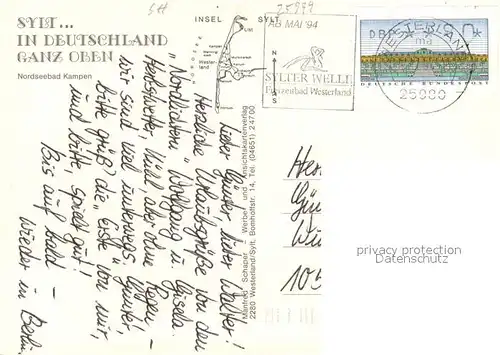 SYLT...
IN DEUTSCHLAND
GANZ OBEN
Nordseebad Kampen
SH
25999
INSEL SYLT
List
Kampen
Wester-
land
N
S
AB MAI '94
SYLTER WELLE
Freizeitbad Westerland
WESTERLAND
25980
DBP
DEUTSCHE BUNDESPOST
Lieber Günter, lieber Walter!
Herzliche Urlaubsgrüße von den
"Nordlichtern" Wolfgang u. Gisela.
Herbstwetter, kühl aber ohne Regen,
wir sind viel unterwegs.
bitte grüß' die "Erste" von mir,
und bitte, spielt gut!
Bis auf bald –
wieder in Berlin.
Manfred Schaper - Werbe- und Ansichtskartenverlag
2280 Westerland-Sylt, Bomhoffstr. 14, Tel. (04651) 2 47 00
Her
Gün
105
privacy protection
Datenschutz